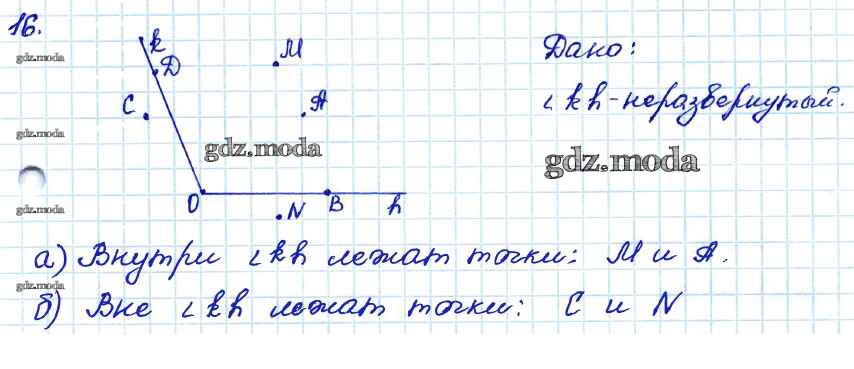 16.
k
M
Дано:
gdz.moda
D
C
A
∠kh - неразвернутый.
gdz.moda
gdz.moda
gdz.moda
O
B
h
gdz.moda
N
а) Внутри ∠kh лежат точки: M и A.
gdz.moda
б) Вне ∠kh лежат точки: C и N